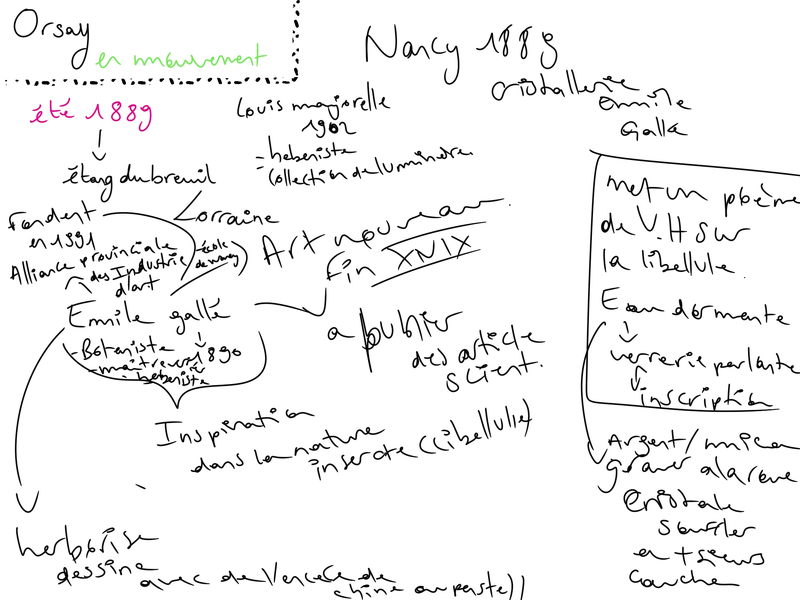 Orsay
en mouvement
Nancy 1889
cristallerie
Emile
Gallé
été 1889
Louis majorelle
1902
- hebeniste
collection de luminaire
étang du breuil
Lorraine
fondent
en 1391
Alliance provinciale
des Industrie
d'art
école
de nancy
Art nouveau
fin XNIX
Emile gallé
- Botaniste
- maître verrier 1890
- hebeniste
a publier
des article
scient.
Inspiration
dans la nature
insecte (libellule)
met un poème
de V.H sur
la libellule
Eau dormante
verrerie parlante
inscription
Argent/mica
graver a la roue
Cristale
souffler
en + sieurs
couche
herborise
dessine
avec de l'encre de
chine